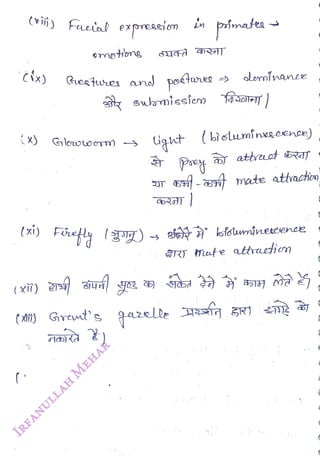 (viii) Facial expression in primates →
emotions व्यक्त करना
(ix) Gestures and postures ⇒ dominance
और submission दिखाना |
(x) Glowworm → Light (bioluminescence)
से Prey को attract करना
या कभी-कभी mate attraction
करना |
(xi) Firefly (जुगनू) → अंधेरे में bioluminescence
द्वारा mate attraction
(xii) हाथी अपनी सूण्ड का संकेत देने में काम लेते हैं|
(xiii) Grant's gazelle प्रदर्शन द्वारा झगड़े को
नकारते है |
(.
IRFANULLAH MEHAR